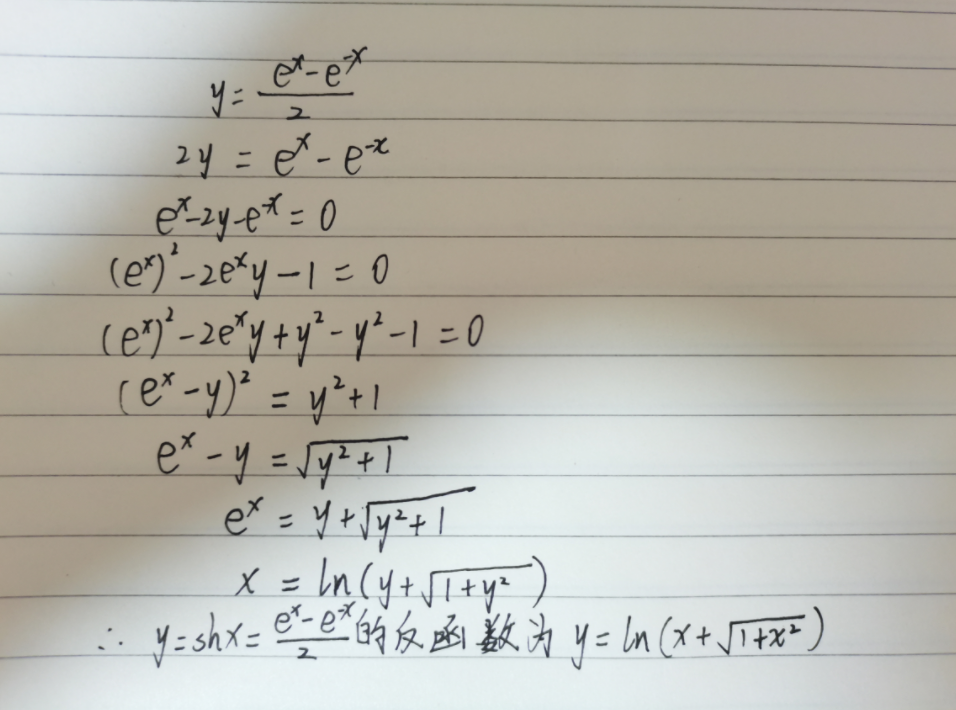 y = (e^x - e^-x)/2
2y = e^x - e^-x
e^x - 2y - e^-x = 0
(e^x)² - 2e^x y - 1 = 0
(e^x)² - 2e^x y + y² - y² - 1 = 0
(e^x - y)² = y² + 1
e^x - y = √(y² + 1)
e^x = y + √(y² + 1)
x = ln(y + √(1 + y²))
∴ y = shx = (e^x - e^-x)/2 的反函数为 y = ln(x + √(1 + x²))